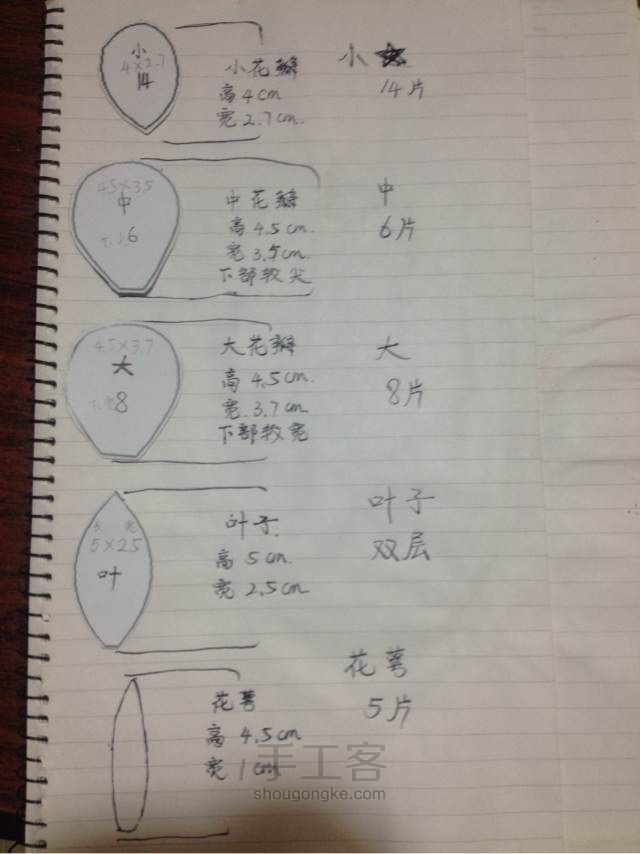 小
4×2.7
14
小花瓣
高 4cm
宽 2.7cm.
小
14片
4.5×3.5
中
6
中花瓣
高 4.5cm.
宽 3.5cm
下部较尖
中
6片
4.5×3.7
大
8
大花瓣
高 4.5cm.
宽.3.7cm
下部较宽
大
8片
长 宽
5×2.5
叶
叶子.
高 5cm.
宽 2.5cm
叶子
双层
花萼
高 4.5cm
宽 1cm
花萼
5片
手工客
shougongke.com